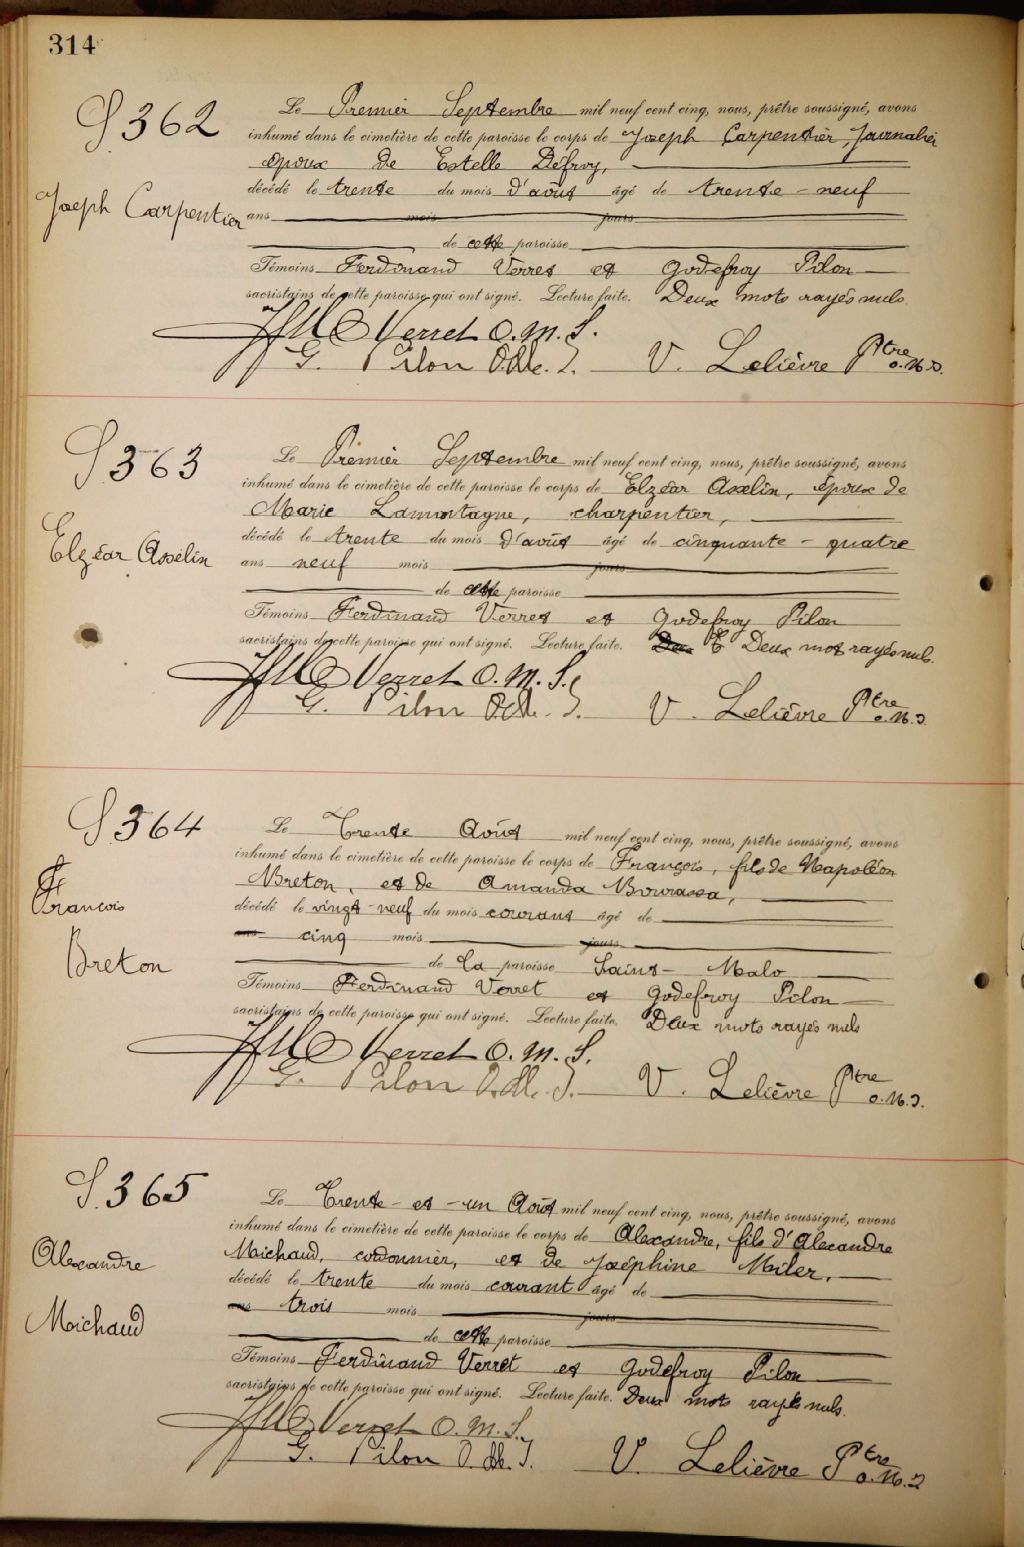 314
S. 362
Joseph Carpentier
Le Premier Septembre mil neuf cent cinq, nous, prêtre soussigné, avons
inhumé dans le cimetière de cette paroisse le corps de Joseph Carpentier, journalier
époux de Estelle Defroy,
décédé le trente du mois d'août âgé de trente-neuf
ans mois jours
de cette paroisse
Témoins Ferdinand Verret et Godefroy Pilon
sacristains de cette paroisse qui ont signé. Lecture faite. Deux mots rayés nuls.
Verret O. M. I.
G. Pilon O. M. I. V. Lelièvre Ptre
o.m.i.
S. 363
Elzéar Asselin
Le Premier Septembre mil neuf cent cinq, nous, prêtre soussigné, avons
inhumé dans le cimetière de cette paroisse le corps de Elzéar Asselin, époux de
Marie Lamontagne, charpentier,
décédé le trente du mois d'août âgé de cinquante-quatre
ans neuf mois jours
de cette paroisse
Témoins Ferdinand Verret et Godefroy Pilon
sacristains de cette paroisse qui ont signé. Lecture faite. Deux mot rayés nuls.
Verret O. M. I.
G. Pilon O. M. I. V. Lelièvre Ptre
o.m.i.
S. 364
François
Breton
Le Trente Août mil neuf cent cinq, nous, prêtre soussigné, avons
inhumé dans le cimetière de cette paroisse le corps de François, fils de Napoléon
Breton, et de Amanda Bourassa,
décédé le vingt-neuf du mois courant âgé de
ans cinq mois jours
de la paroisse Saint-Malo
Témoins Ferdinand Verret et Godefroy Pilon
sacristains de cette paroisse qui ont signé. Lecture faite. Deux mots rayés nuls
Verret O. M. I.
G. Pilon O. M. I. V. Lelièvre Ptre
o.m.i.
S. 365
Alexandre
Michaud
Le Trente-et-un Août mil neuf cent cinq, nous, prêtre soussigné, avons
inhumé dans le cimetière de cette paroisse le corps de Alexandre, fils d'Alexandre
Michaud, cordonnier, et de Joséphine Miler,
décédé le trente du mois courant âgé de
ans trois mois jours
de cette paroisse
Témoins Ferdinand Verret et Godefroy Pilon
sacristains de cette paroisse qui ont signé. Lecture faite. Deux mots rayés nuls.
Verret O. M. I.
G. Pilon O. M. I. V. Lelièvre Ptre
o.m.i.